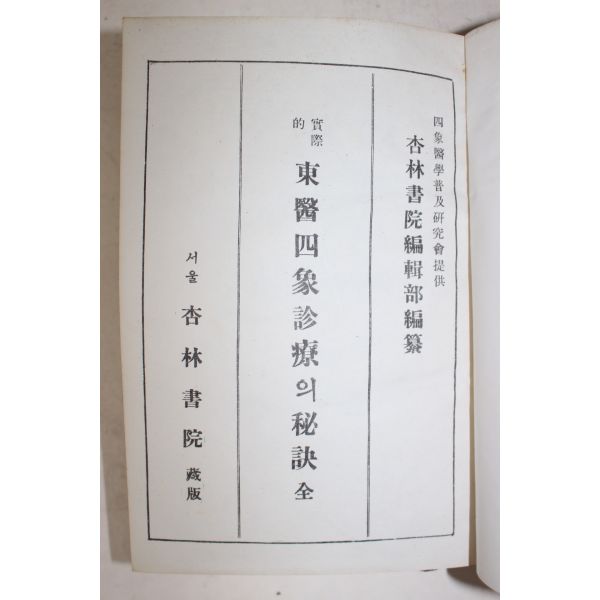 四象醫學普及硏究會提供
杏林書院編輯部編纂
實際的
東醫四象診療의秘訣全
서울 杏林書院藏版